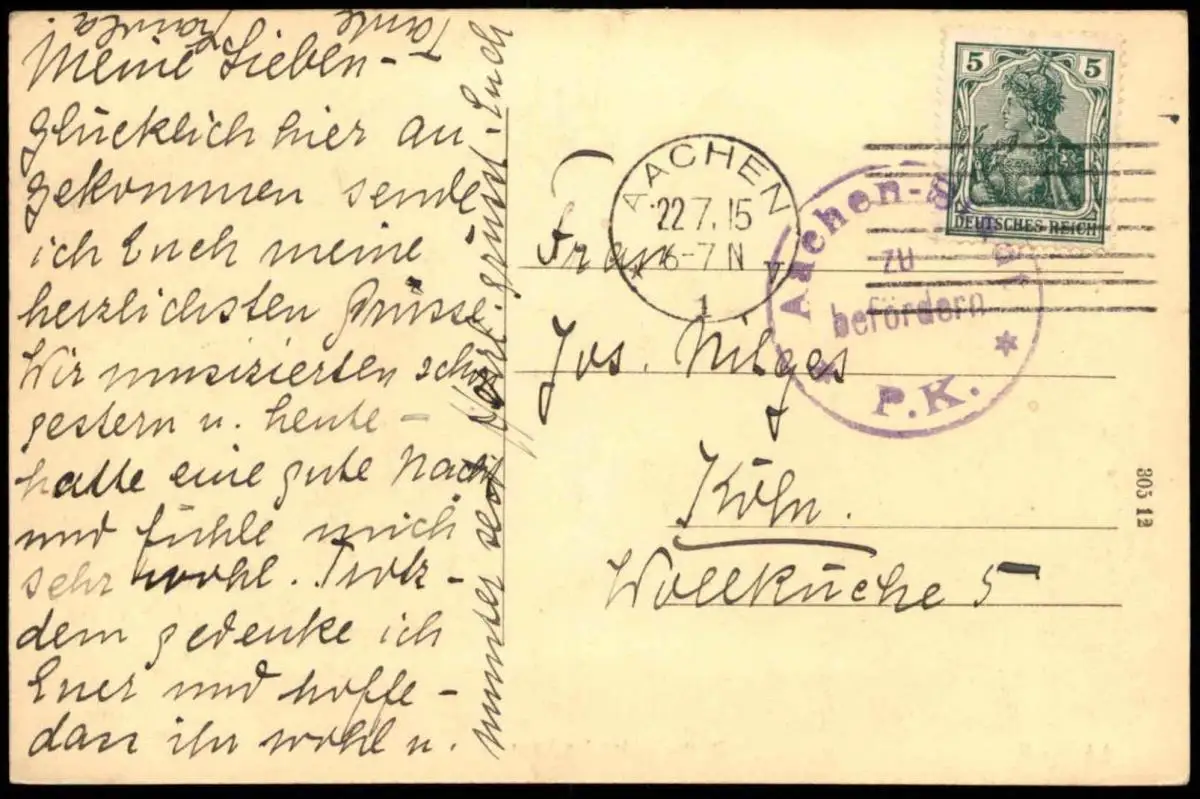 Meine Lieben-
Glücklich hier an
gekommen sende
ich Euch meine
herzlichsten Grüsse.
Wir musizierten schon
gestern u. heute -
hatte eine gute Nacht
und fühle mich
sehr wohl. Trotz-
dem gedenke ich
Euer und hoffe -
dass ihr wohl u.
munter seit. grüsst Euch
Tante
5 5
DEUTSCHES REICH
AACHEN
22.7.15
6-7 N
1
Aachen-
zu
befördern
P.K.
Frau
Jos. Nilges
Köln.
Wollküche 5
305 12